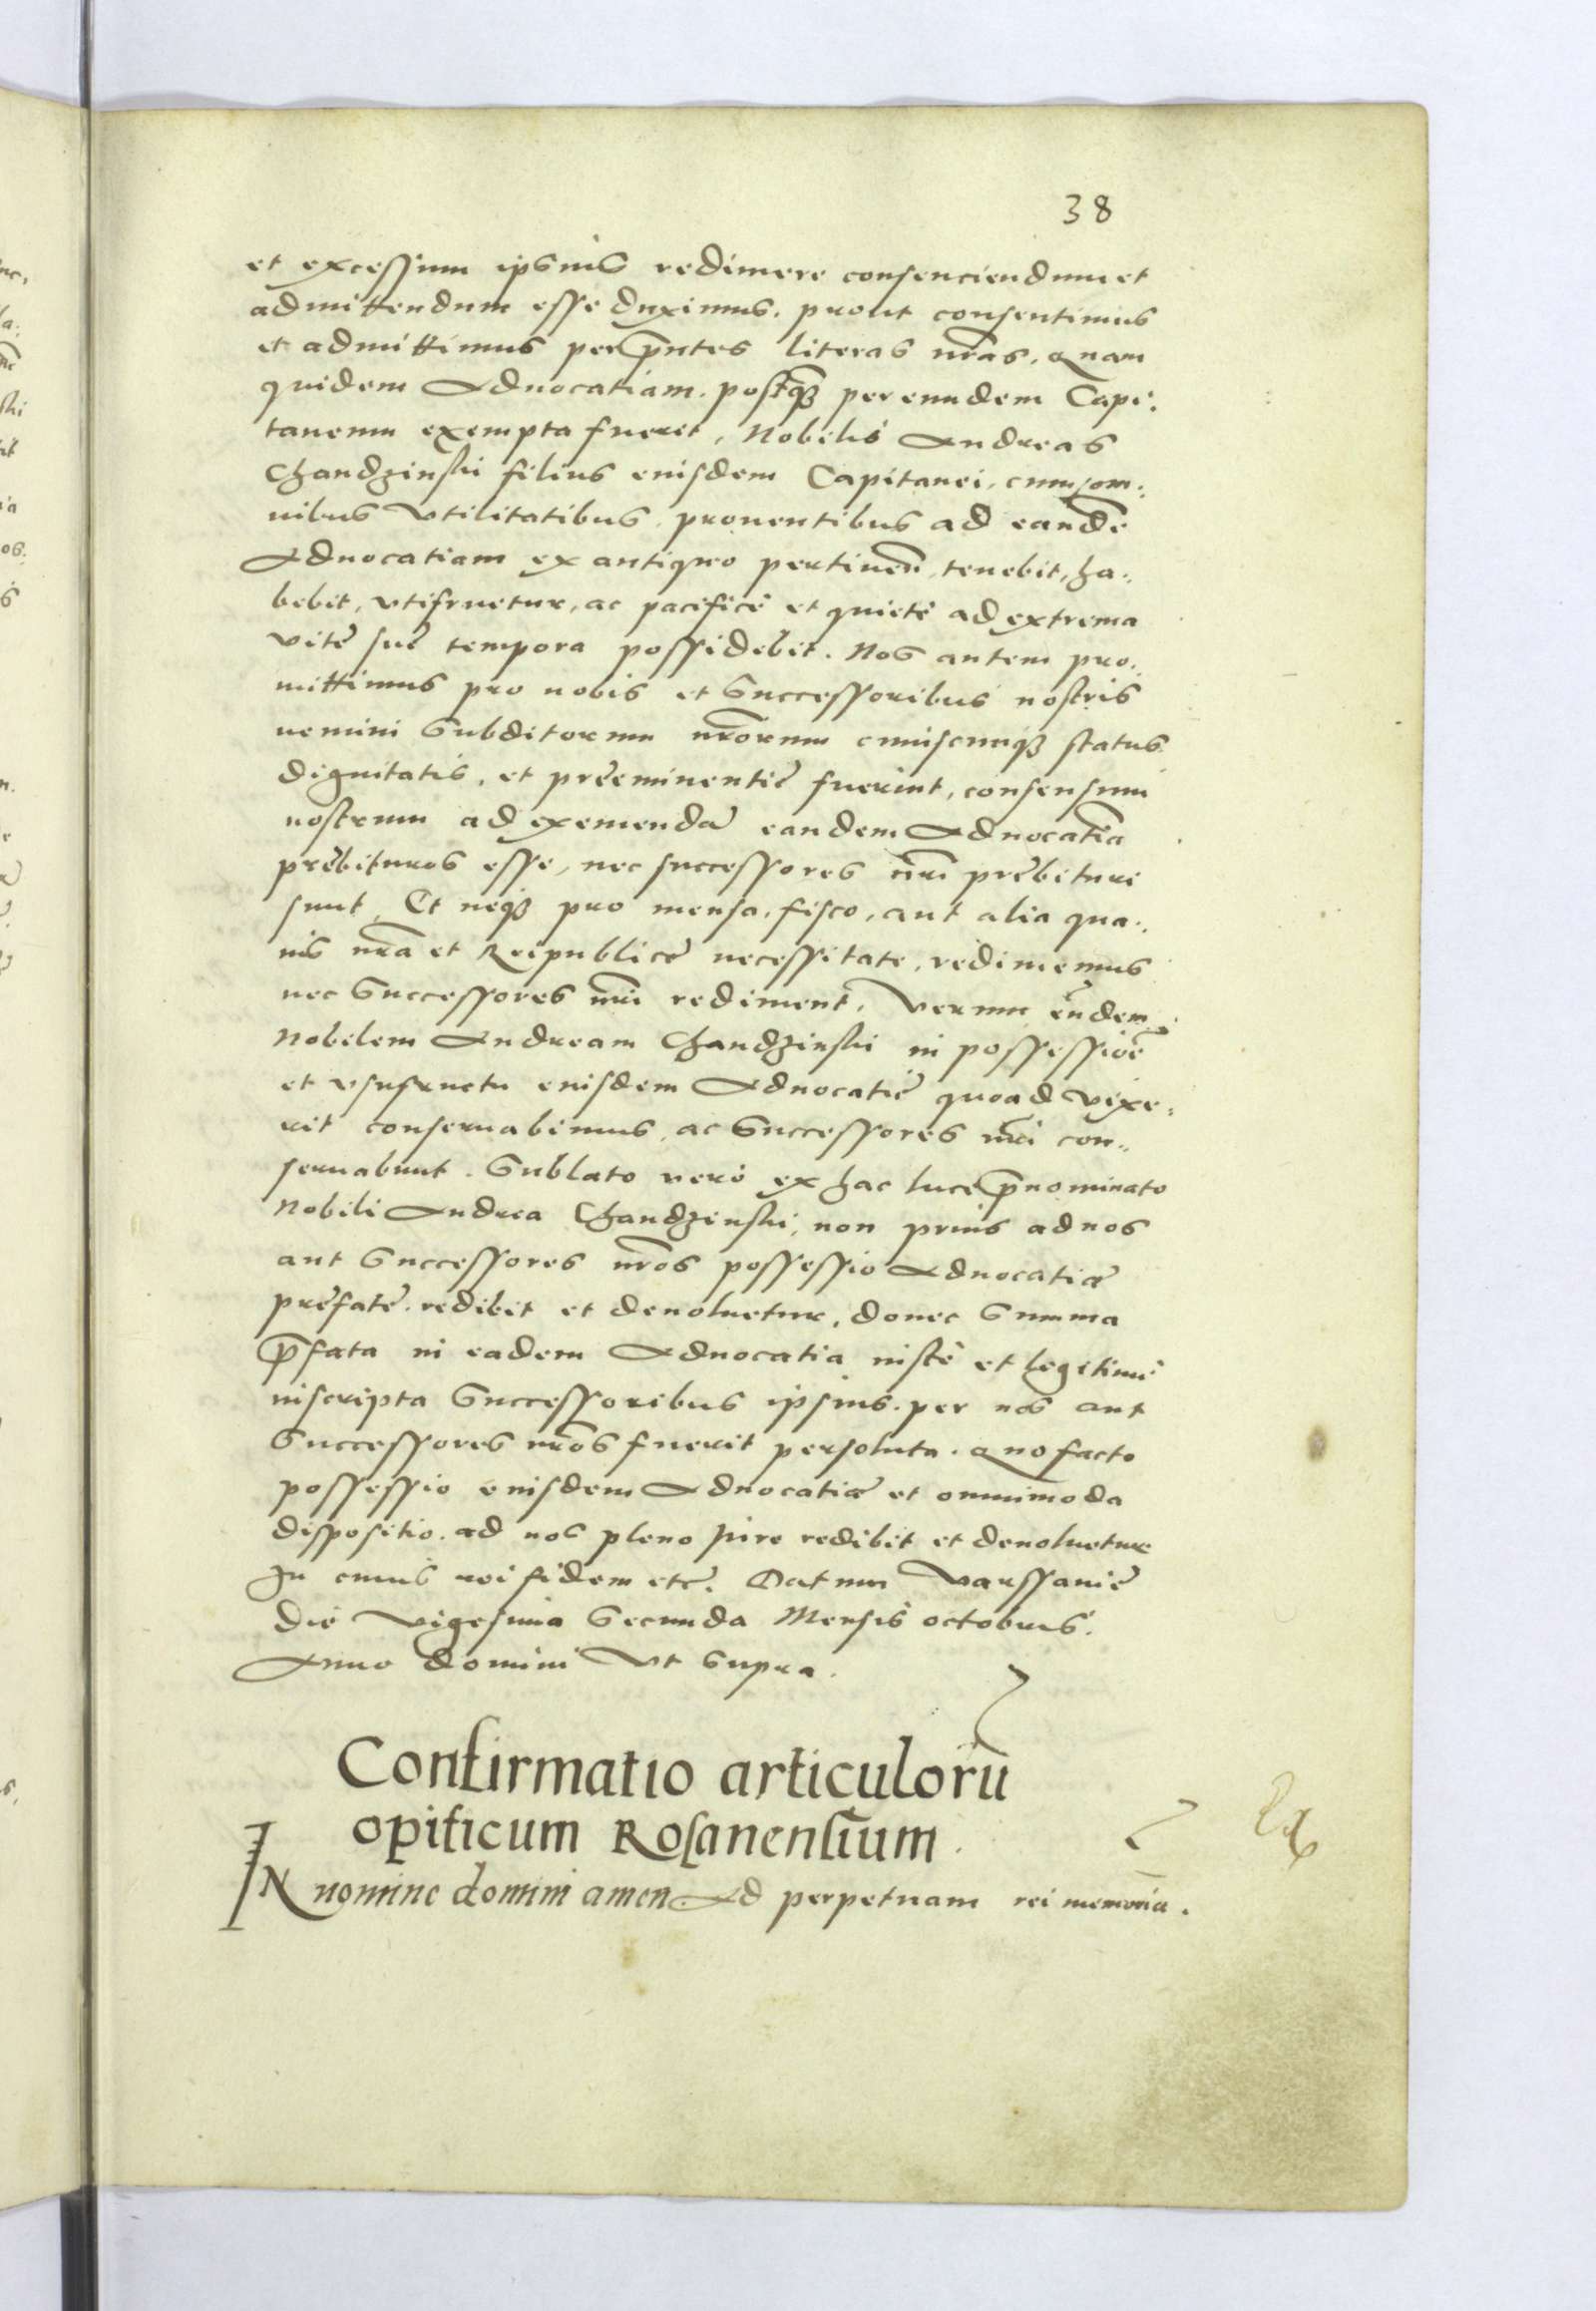 38
et excessium ipsius redimere consenciendum et
admittendum esse duximus. prout consentimus
et admittimus per pn̄tes literas nr̄as, Quam
quidem Aduocatiam. postq̄ꝫ per eundem Capi.
taneum exempta fuerit, Nobilis Andreas
Chandzinski filius eiusdem Capitanei, cum om:
nibus vtilitatibus prouentibus ad eandē
Aduocatiam ex antiquo pertineñ, tenebit, ha.,
bebit, vtifruetur, ac pacificè et quietè ad extrema
vitę suę tempora possidebit. Nos autem pro.,
mittimus pro nobis et Successoribus nostris
nemini Subditorum nr̄orum cuiuscunqꝫ status
dignitatis, et pręeminentię fuerint, consensum
nostrum ad exemendā eandem Aduocatiā
prębituros esse, nec successores nr̄i prębituri
sunt, Et neqꝫ pro mensa, fisco, aut alia qua.,
uis nr̄a et Reipublicę necessitate, redimemus
nec Successores nr̄i rediment, Verum eūdem
Nobilem Andream Chandzinski in possessiōe
et vsufructu eiusdem Aduocatię quoad vixe:
rit conseruabimus, ac Successores nr̄i con.,
seruabunt. Sublato verò ex hac luce p̄nominato
Nobili Andrea Chandzinski, non prius ad nos
aut Successores nr̄os possessio Aduocatiæ
pręfatę redibit et deuoluetur, donec Summa
p̄fata in eadem Aduocatia iustè et legitimè
inscripta Successoribus ipsius. per nos aut
Successores nr̄os fuerit persoluta. Quo facto
possessio eiusdem Aduocatiæ et omnimoda
dispositio. ad nos pleno jure redibit et deuoluetur
In cuius rei fidem etc. Datum Varssauię
die vigesima Secunda Mensis octobris.
Anno domini Vt Supra.
Confirmatio articulorū
opificum Rosanensium.
IN nomine domini amen. Ad perpetuam rei memoriā.